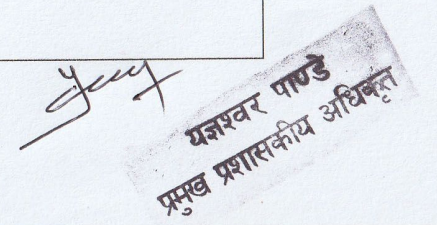 यज्ञश्वर पाण्डे
प्रमुख प्रशासकीय अधिकृत